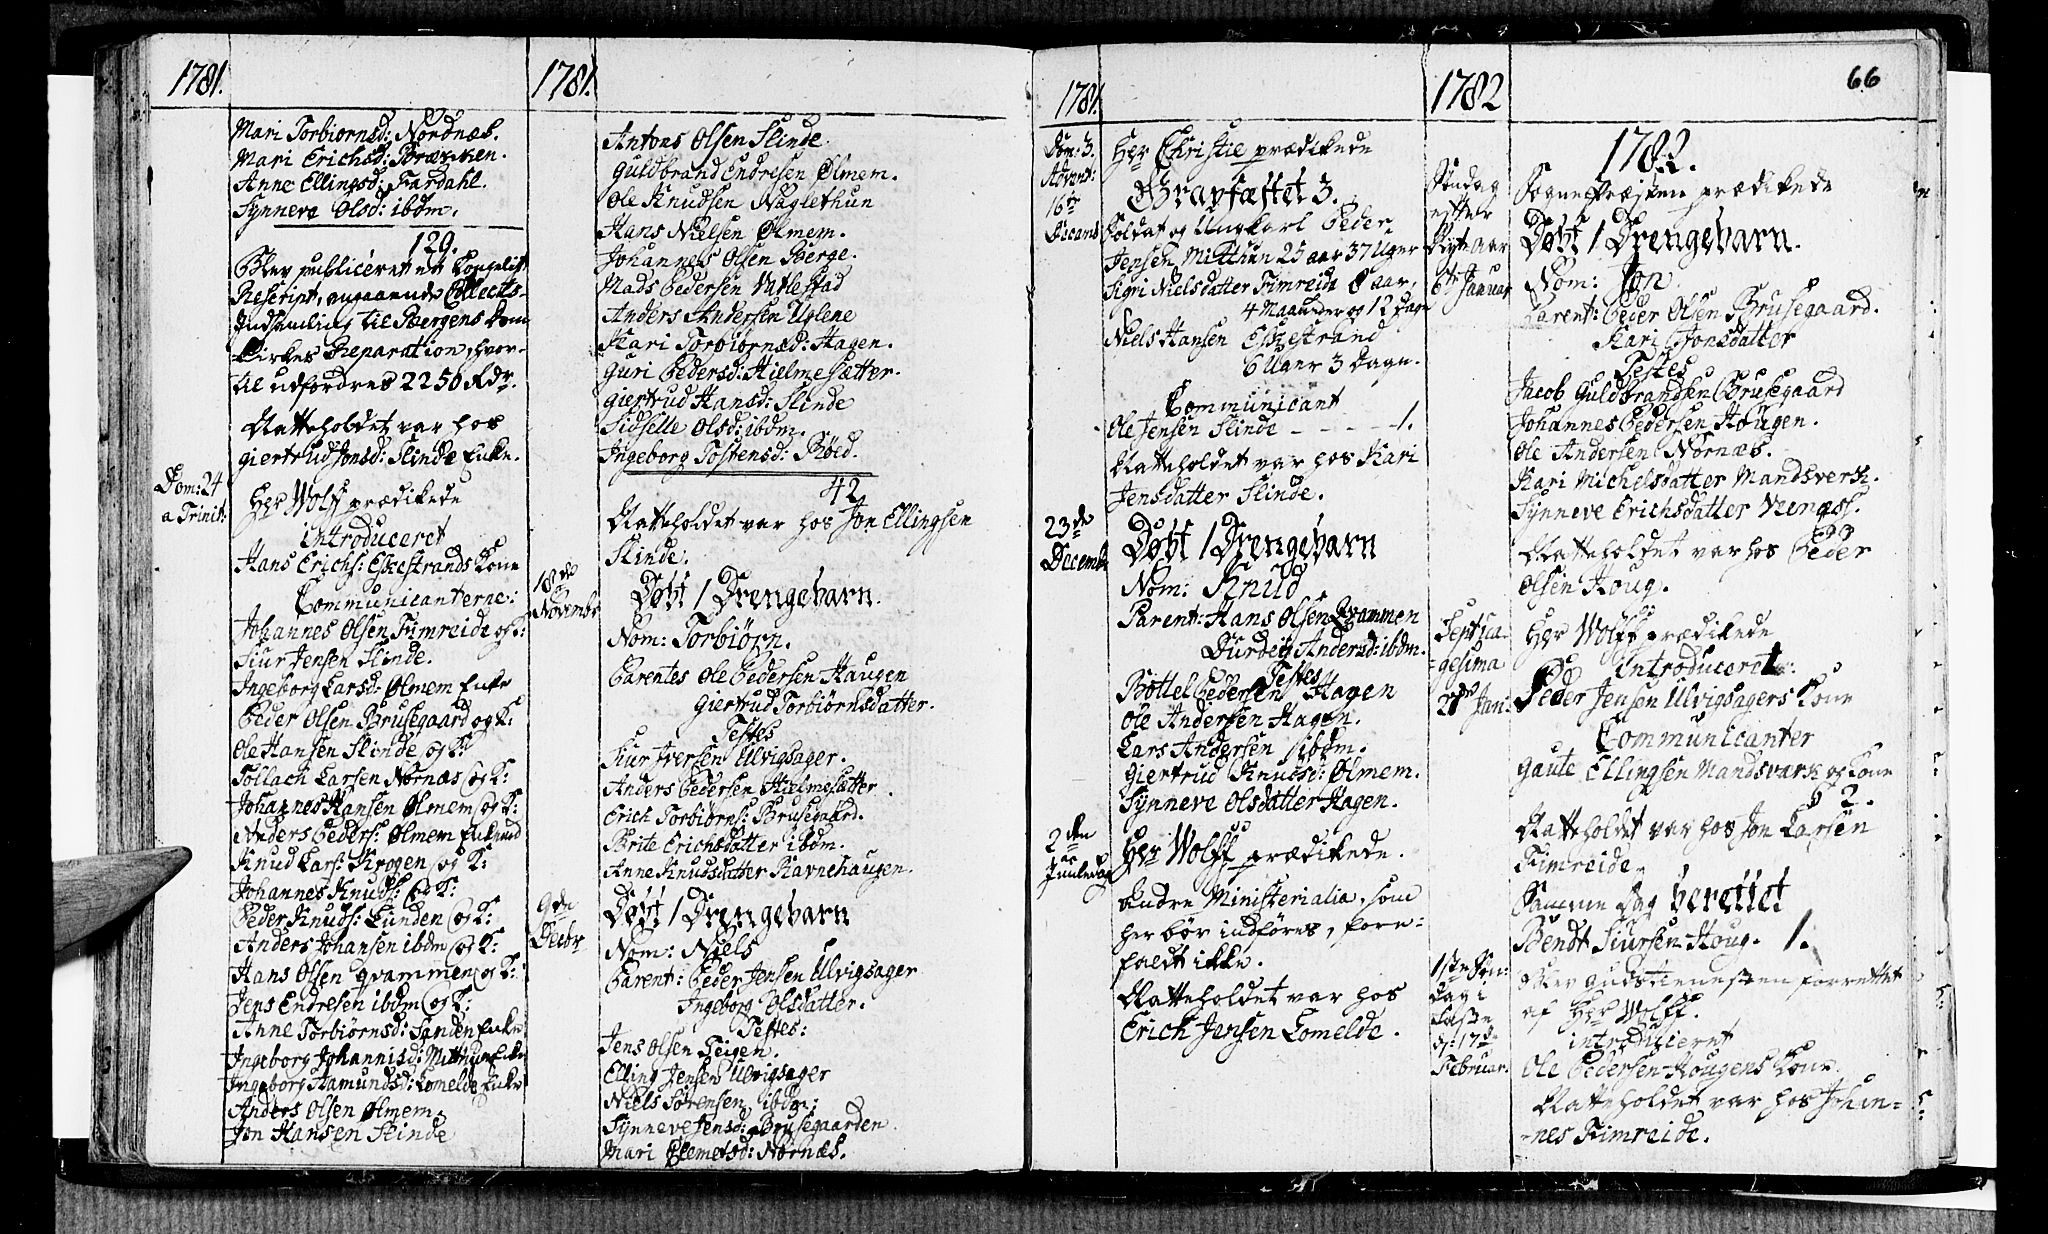 1781.
Mari Torbiørnsd: Nordnæs.
Mari Erichsd: Bræcken.
Anne Ellingsd: Fardahl.
Synneve Olsd: ibdm.
129.
Blev publiceret et Kongeligt
Rescript, angaaende Collects-
Indsamling til Bergens Dom-
Kirkes Reparation, hvor-
til udfordres 2250 Rdr.
Natteholdet var hos
Giertrud Jonsd: Slinde Enke.
Dom: 24
a Trinit:
Hr Wolff prædikede
introduceret
Hans Erichs: Eskestrands Kone
Communicanterne:
Johannes Olsen Fimreide og K:
Siur Jensen Slinde.
Ingeborg Larsd: Ølmem Enke
Peder Olsen Brusegaard og K:
Ole Hansen Slinde og K:
Tollach Larsen Nornæs og K:
Johannes Hansen Ølmem og K:
Anders Peders: Ølmem Enkemd
Knud Lars: Krogen og K:
Johannes Knuds: og K:
Peder Knuds: Lunden og K:
Anders Johansen ibdm og K:
Hans Olsen qvammen og K:
Jens Endresen ibdm og K:
Anne Torbiørnsd: Sanden Enke
Ingeborg Johannisd: Mitthun Enke
Ingeborg Hamundsd: Lomelde Enke
Anders Olsen Ølmem.
Jon Hansen Slinde
1781.
Antons Olsen Slinde.
Guldbrand Endresen Ølmem.
Ole Knudsen Naglethun
Hans Nielsen Ølmem.
Johannes Olsen Berge.
Mads Pedersen Vatlestad
Anders Andersen Uglene
Kari Torbiørnsd: Hagen.
Guri Pedersd: Hielmesætter.
Giertrud Hansd: Slinde
Sidselle Olsd: ibdm.
Ingeborg Tostensd: Røed.
42
Natteholdet var hos Jon Ellingsen
Slinde.
18de
Novembr
Døbt 1 Drengebarn.
Nom: Torbiørn.
Parentes Ole Pedersen Haugen
Giertrud Torbiørnsdatter.
Testes
Siur Iversen Ulvigsager.
Anders Pedersen Hielmesætter.
Erich Torbiørns: Brusegaard.
Brite Erichsdatter ibdm.
Anne Knudsdatter Ravnehaugen.
9de
Decbr
Døbt 1 Drengebarn
Nom: Niels
Parent: Peder Jensen Ulvigsager
Ingeborg Olsdatter.
Testes:
Jens Olsen Teigen.
Elling Jensen Ulvigsager
Niels Sørensen ibdm:
Synneve Jensd: Brusegaarden.
Mari Clemetsd: Nornæs.
1781.
Dom: 3.
Advent:
16de
Hr Christie prædikede
Gravfæstet 3.
Soldat og Ungkarl Peder
Jensen Mitthun 25 aar 37 Uger
Sigri Nielsdatter Fimreide 8 aar,
4 Maaneder og 12 Dage
Niels Hansen Eskestrand
6 Uger 3 Dage.
Communicant
Ole Jensen Slinde - - - - - 1.
Natteholdet var hos Kari
Jensdatter Slinde.
23de
Decemb
Døbt 1 Drengebarn
Nom: Knud
Parent: Hans Olsen Qvammen
Durdei Andersd: ibdm.
Testes
Bottel Pedersen Hagen
Ole Andersen Hagen.
Lars Andersen ibdm.
Giertrud Knudsd: Ølmem.
Synneve Olsdatter Hagen.
2den
Juuledag
Hr Wolff prædikede.
Andre Ministerialia, som
her bør indføres, fore-
faldt ikke.
Natteholdet var hos
Erich Jensen Lomelde.
1782
66
1782.
Søndag
efter
Nyt Aar
6te Januar
Sognepræsten prædikede
Døbt 1 Drengebarn.
Nom: Jon
Parent: Peder Olsen Brusegaard.
Kari Jonsdatter
Testes
Jacob Guldbrandsen Brusegaard
Johannes Pedersen Hougen.
Ole Andersen Nornæs.
Kari Michelsdatter Mandsverk.
Synneve Erichsdatter
Natteholdet var hos Peder
Olsen Houg.
Septua-
gesima
Jan:
Hr Wolff prædikede
Introduceret:
Peder Jensen Ulvigsagers Kone
Communicanter
Gaute Ellingsen Mandsvark og Kone
2.
Natteholdet var hos Jon Larsen
Fimreide.
Samme Dag berettet
Bendt Siursen Houg. 1.
1ste Søn-
dag i
Faste
d: 17de
Februar.
Blev Gudstienesten forrettet
af Hr Wolff.
introduceret
Ole Pedersen Hougens Kone.
Natteholdet var hos Johan-
-nes Fimreide.